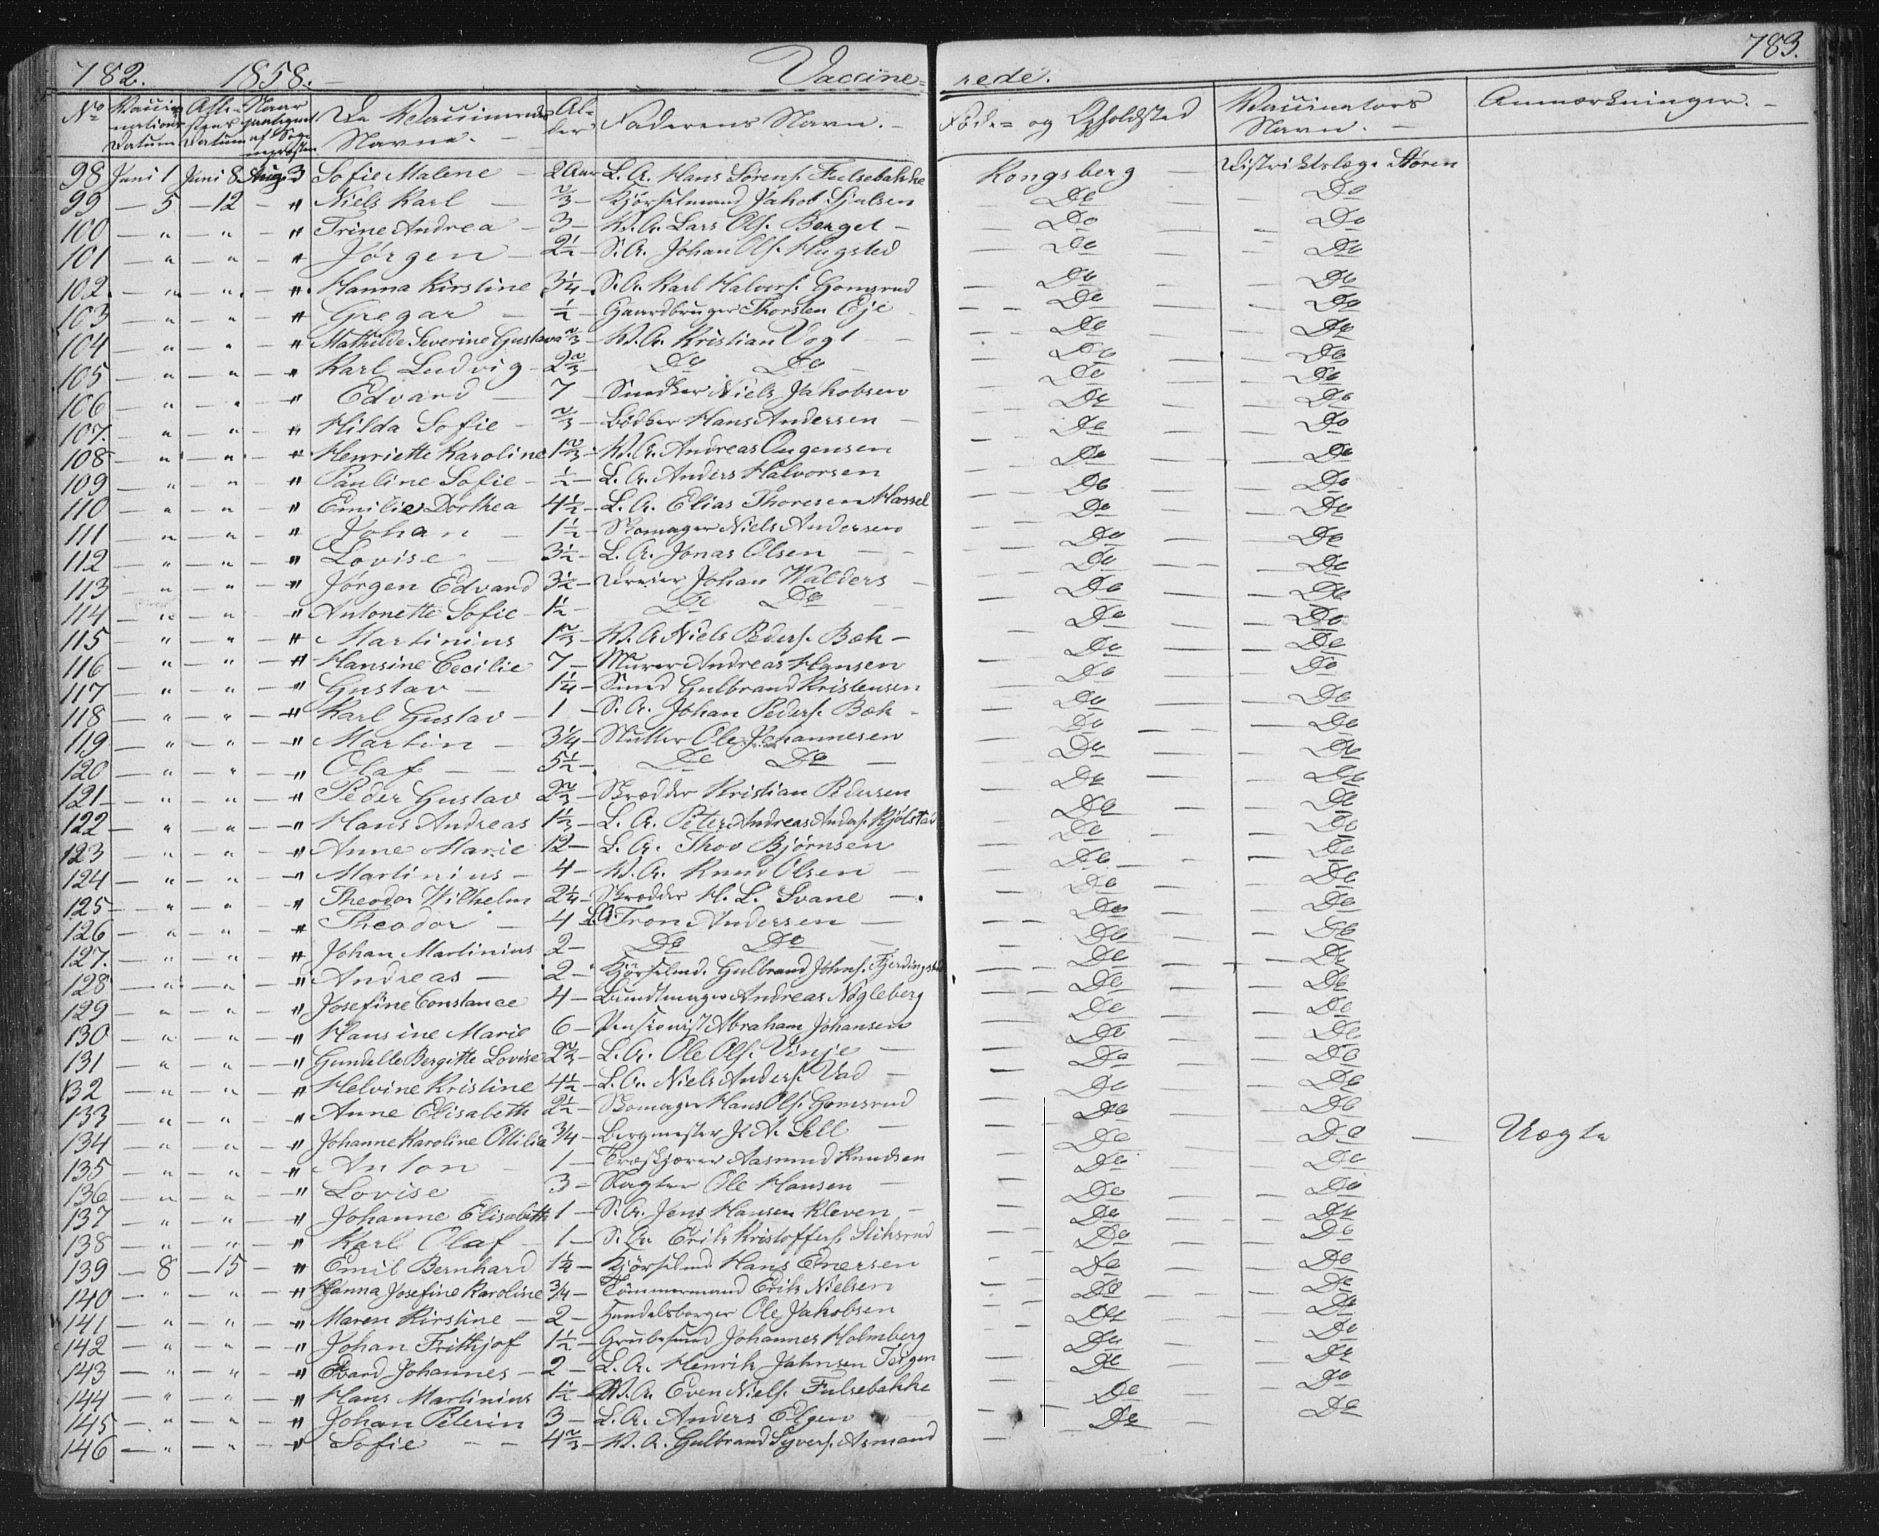 782. 1858. Vaccine= rede. 783.
No Vaccinations Datum Datum De Vaccineredes Navne. Alder Faderens Navn. Føde= og Opholdsted Vaccinators Navn. Anmærkninger.
98 Juni 1 Juni 8 Aug 3 Sofie Malene 2 Aar L. A. Hans Sørens. Fulsebakke Kongsberg Distriktslæge Støren
99 — 5 — 12 — " Niels Karl 2/3 — Kjørselmand Jakob Do Do
100 — " — " — " Trine Andrea — 3 — W. A. Lars Ols. Berget — Do Do
101 — " — " — " Jørgen — 2½ — S. A. Johan Ols. Hugsted Do Do
102 — " — " — " Hanna Kirstine 3¼ — S. A. Karl Halvors. Gomsrud Do Do
103 — " — " — " Gregar — ½ — Gaardbruger Thorsten Eje Do Do
104 — " — " — " Mathilde Severine Gustava 2/3 — W. A. Kristian Vogt Do Do
105 — " — " — " Karl Ludvig — 2 2/3 — Do Do Do Do
106 — " — " — " Edvard — 7 — Niels Jakobsen Do Do
107 — " — " — " Hilda Sofie — 2/3 — Bødker Hans Andersen Do Do
108 — " — " — " Henriette Karoline 1 2/3 — W. A. Andreas Do Do
109 — " — " — " Pauline Sofie — ½ — L. A. Anders Halvorsen Do Do
110 — " — " — " Emilie Dorthea 4½ — L. A. Elias Thoresen Hassel Do Do
111 — " — " — " Johan — 1½ — Skomager Niels Andersen Do Do
112 — " — " — " Lovise — 3½ — L. A. Jonas Olsen Do Do
113 — " — " — " Jørgen Edvard 3½ — Dreier Johan Walders Do Do
114 — " — " — " Antonette Sofie — 1½ — Do Do Do Do
115 — " — " — " Martinius 1 2/3 — W. A. Niels Peders. Bæk — Do Do
116 — " — " — " Hansine Cecilie 7 — Murer Andreas Hansen Do Do
117 — " — " — " Gustav — 1¼ — Smed Gulbrand Kristensen Do Do
118 — " — " — " Karl Gustav — 1 — S. A. Johan Peders. Bæk — Do Do
119 — " — " — " Martin — 3¼ — Ole Johannesen Do Do
120 — " — " — " Olaf — 5½ — Do Do Do Do
121 — " — " — " Peder Gustav 2 2/3 — Skrædder Kristian Pedersen Do Do
122 — " — " — " Hans Andreas 1 1/3 — L. A. Peter Andreas Anders. Kjølstad Do Do
123 — " — " — " Anne Marie 12 — L. A. Thov Bjørnsen Do Do
124 — " — " — " Martinius — 4 — W. A. Knud Olsen Do Do
125 — " — " — " Theodor Wilhelm 2¼ — Skrædder H. L. Svane — Do Do
126 — " — " — " Theodor — 4 L. A. Tron Andersen Do Do
127 — " — " — " Johan Martinius 2 — Do Do Do Do
128 — " — " — " Andreas — 2 — Kjørselmd. Gulbrand Johns. Fjerdingstad Do Do
129 — " — " — " Josefine Constance 4 — Bundtmager Andreas Nøgleberg Do Do
130 — " — " — " Hansine Marie 6 — Pensionist Abraham Johansen Do Do
131 — " — " — " Gundelle Bergitte Lovise 2 2/3 — L. A. Ole Ols. Vinje Do Do
132 — " — " — " Helvine Kristine 4½ — L. A. Niels Anders. Vad Do Do
133 — " — " — " Anne Elisabeth 2½ — Skomager Hans Ols. Gomsrud Do Do
134 — " — " — " Johanne Karoline Ottilia 3/4 — Bergmester Do Do — Uægte
135 — " — " — " Anton 1 — Knudsen Do Do
136 — " — " — " Lovise 3 — Slagter Ole Hansen Do Do
137 — " — " — " Johanne Elisabeth 1 — S. A. Jens Hansen Kleven — Do Do
138 — " — " — " Karl Olaf 1 — S. A. Erik Kristoffers. Stiksrud Do Do
139 — 8 — 15 — " Emil Bernhard 1¼ — Kjørselmd. Hans Enersen Do Do
140 — " — " — " Hanna Josefine Karoline 3/4 — Tømmermand Erik Nielsen Do Do
141 — " — " — " Maren Kirstine — 2 — Handelsborger Ole Jakobsen Do Do
142 — " — " — " Johan Frithjof 1½ — Johannes Holmberg Do Do
143 — " — " — " Evard Johannes — 2 — L. A. Henrik Jahnsen Teigen Do Do
144 — " — " — " Hans Martinius 1½ — W. A. Even Niels. Fulsebakke Do Do
145 — " — " — " Johan Peterin 3 — L. A. Anders Elgen Do Do
146 — " — " — " Sofie — 4 2/3 — W. A. Gulbrand Syvers. Asmand